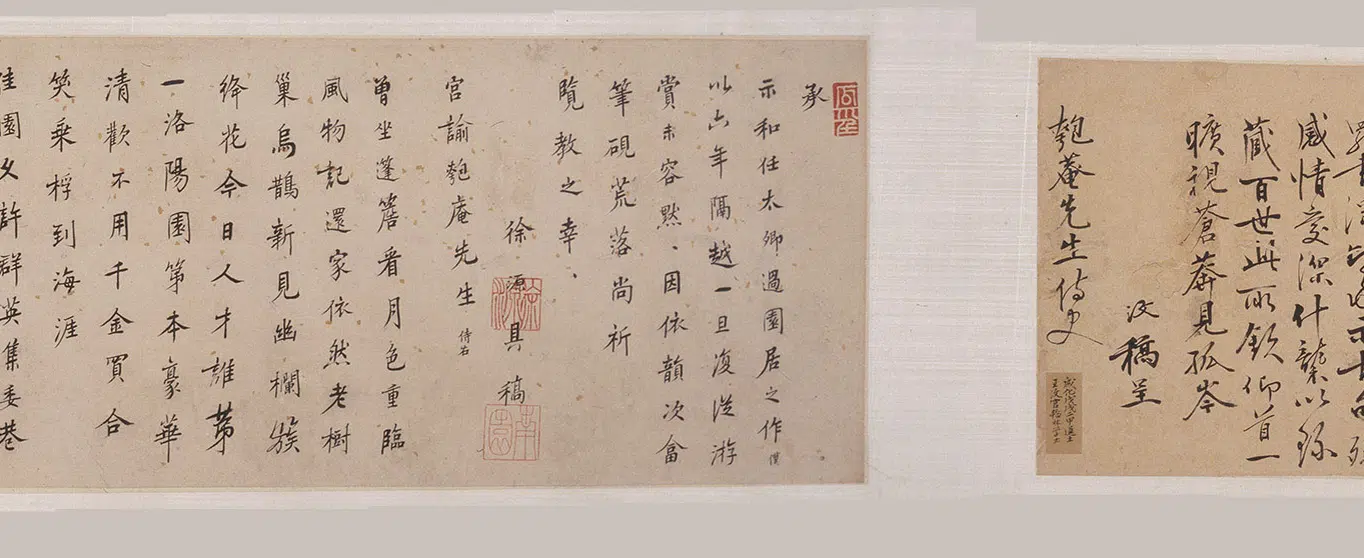 感情交深什襲以珎
藏百世此所欽仰首一
曠視蒼莽見孤岑
汶稿呈
匏菴先生侍史
成化戊戌二甲進士
承
示和任太卿過園居之作僕
以六年隔越一旦復從游
賞未容默、因依韻次畣
筆硯荒落尚祈
覽教之幸、
徐源具稿
宮諭匏庵先生侍右
曾坐蓬窓看月色重臨
風物記還家依然老樹
巢烏鵲新見幽欄簇
絳花今日人才誰第
一洛陽園第本豪華
清歡不用千金買合
笑乘桴到海涯
佳園又許群英集委巷